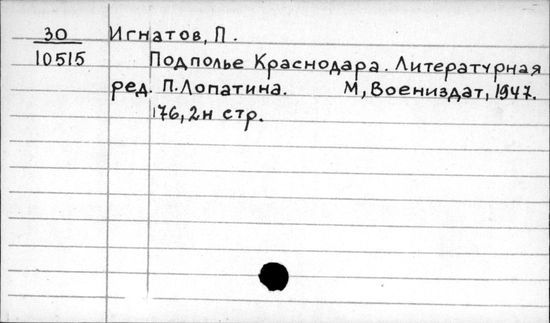 30 Игнатов, П.
10515 Подполье Краснодара. Литературная
ред. П. Лопатина. М, Воениздат, 1947.
176, 2н стр.